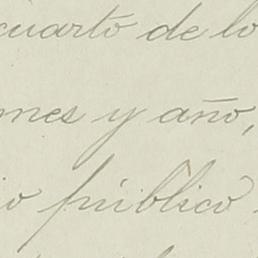 cuarto de lo
mes y año,
io público